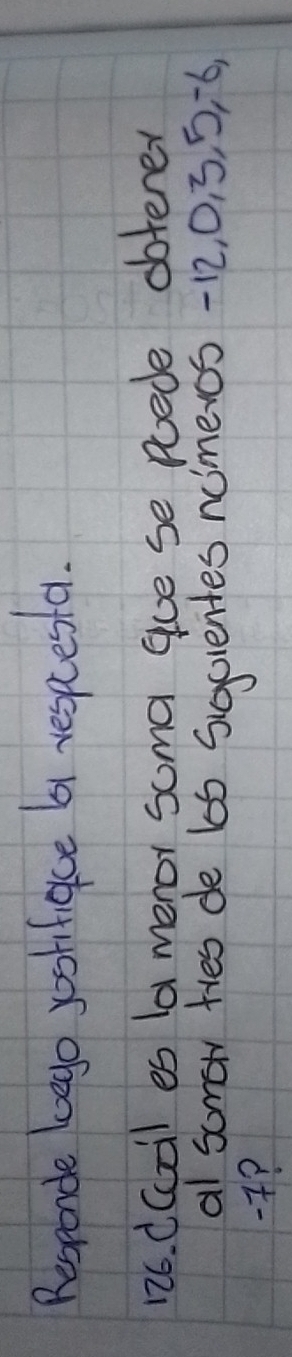 Responde luego justifique la respuesta.
126. ¿Cuál es la menor suma que se puede obtener
al sumar tres de los siguientes números -12, 0, 3, 5, -6,
-7?